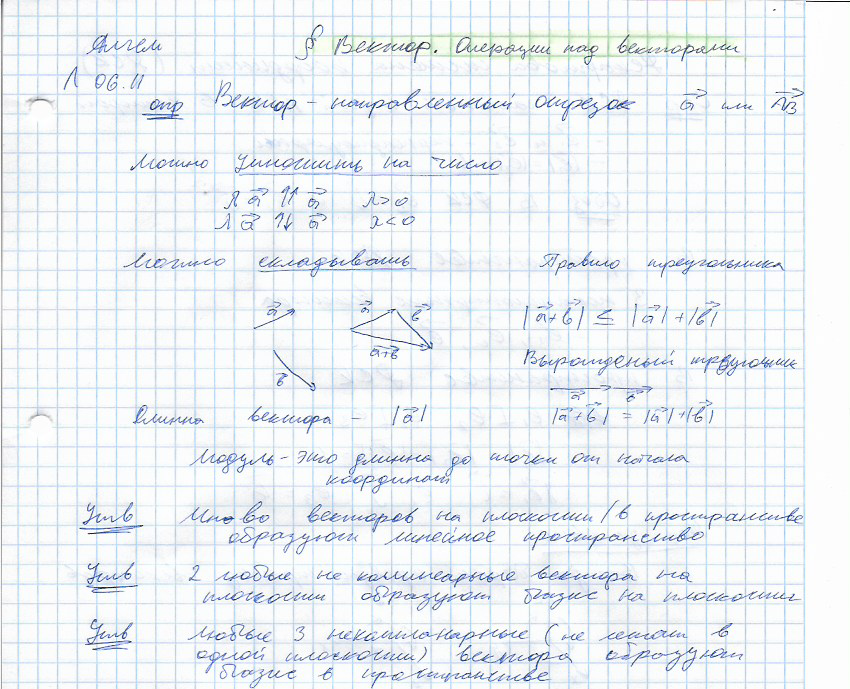 Алгем § Вектор. Операции над векторами
Л 06.11
опр Вектор - направленный отрезок a⃗ или AB⃗
Можно умножить на число
λ a⃗ ↑↑ a⃗ λ>0
λ a⃗ ↑↓ a⃗ λ<0
Можно складывать Правило треугольника
a⃗ a⃗ b⃗ |a⃗+b⃗| ≤ |a⃗|+|b⃗|
a+b
Вырожденый треугольник
b⃗ a⃗ b⃗
Длинна вектора - |a⃗| |a⃗+b⃗| = |a⃗|+|b⃗|
Модуль - это длинна до точки от начала
координат
Утв Мн-во векторов на плоскости/в пространстве
образуют линейное пространство
Утв 2 любые не коллинеарные вектора на
плоскости образуют базис на плоскости
Утв Любые 3 некомпланарные (не лежат в
одной плоскости) вектора образуют
базис в пространстве